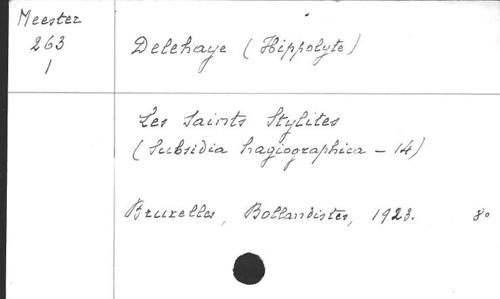 Meester
263
1
Delehaye (Hippolyte)
Les Saints Stylites
(Subsidia hagiographica - 14)
Bruxelles, Bollandistes, 1923. 8°